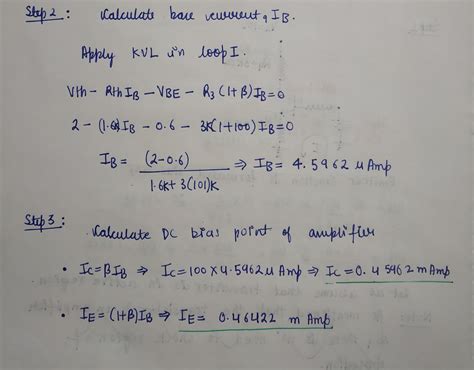 Step 2 : Calculate base current, IB.
Apply KVL in loop I.
Vth - RthIB - VBE - R3(1+β)IB=0
2 - (1.6k)IB - 0.6 - 3K(1+100)IB=0
IB = (2-0.6) ⇒ IB = 4.5962 μAmp
1.6K+3(101)K
Step 3 :
Calculate DC bias point of amplifier
• Ic=βIB ⇒ Ic=100×4.5962μAmp ⇒ Ic=0.45962mAmp
• IE=(1+β)IB ⇒ IE= 0.46422 mAmp